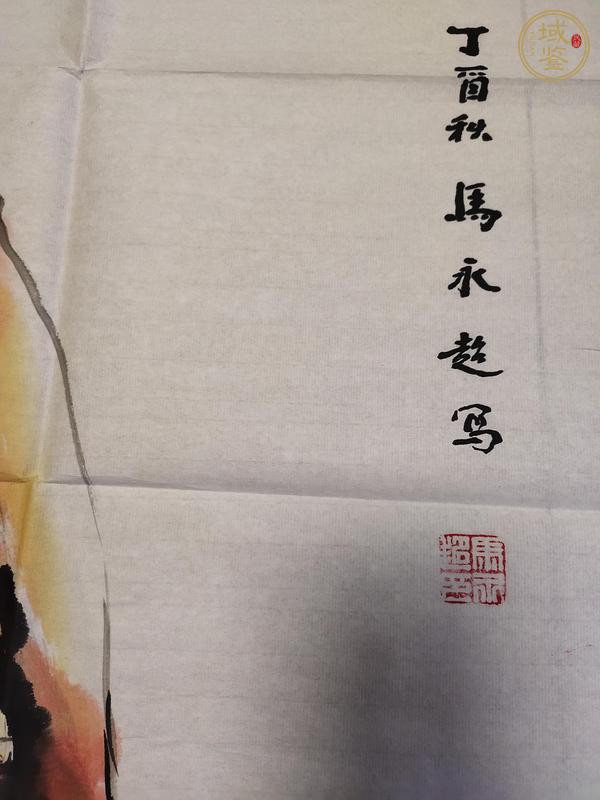 丁酉秋 馬永超写
馬永超印
域鉴